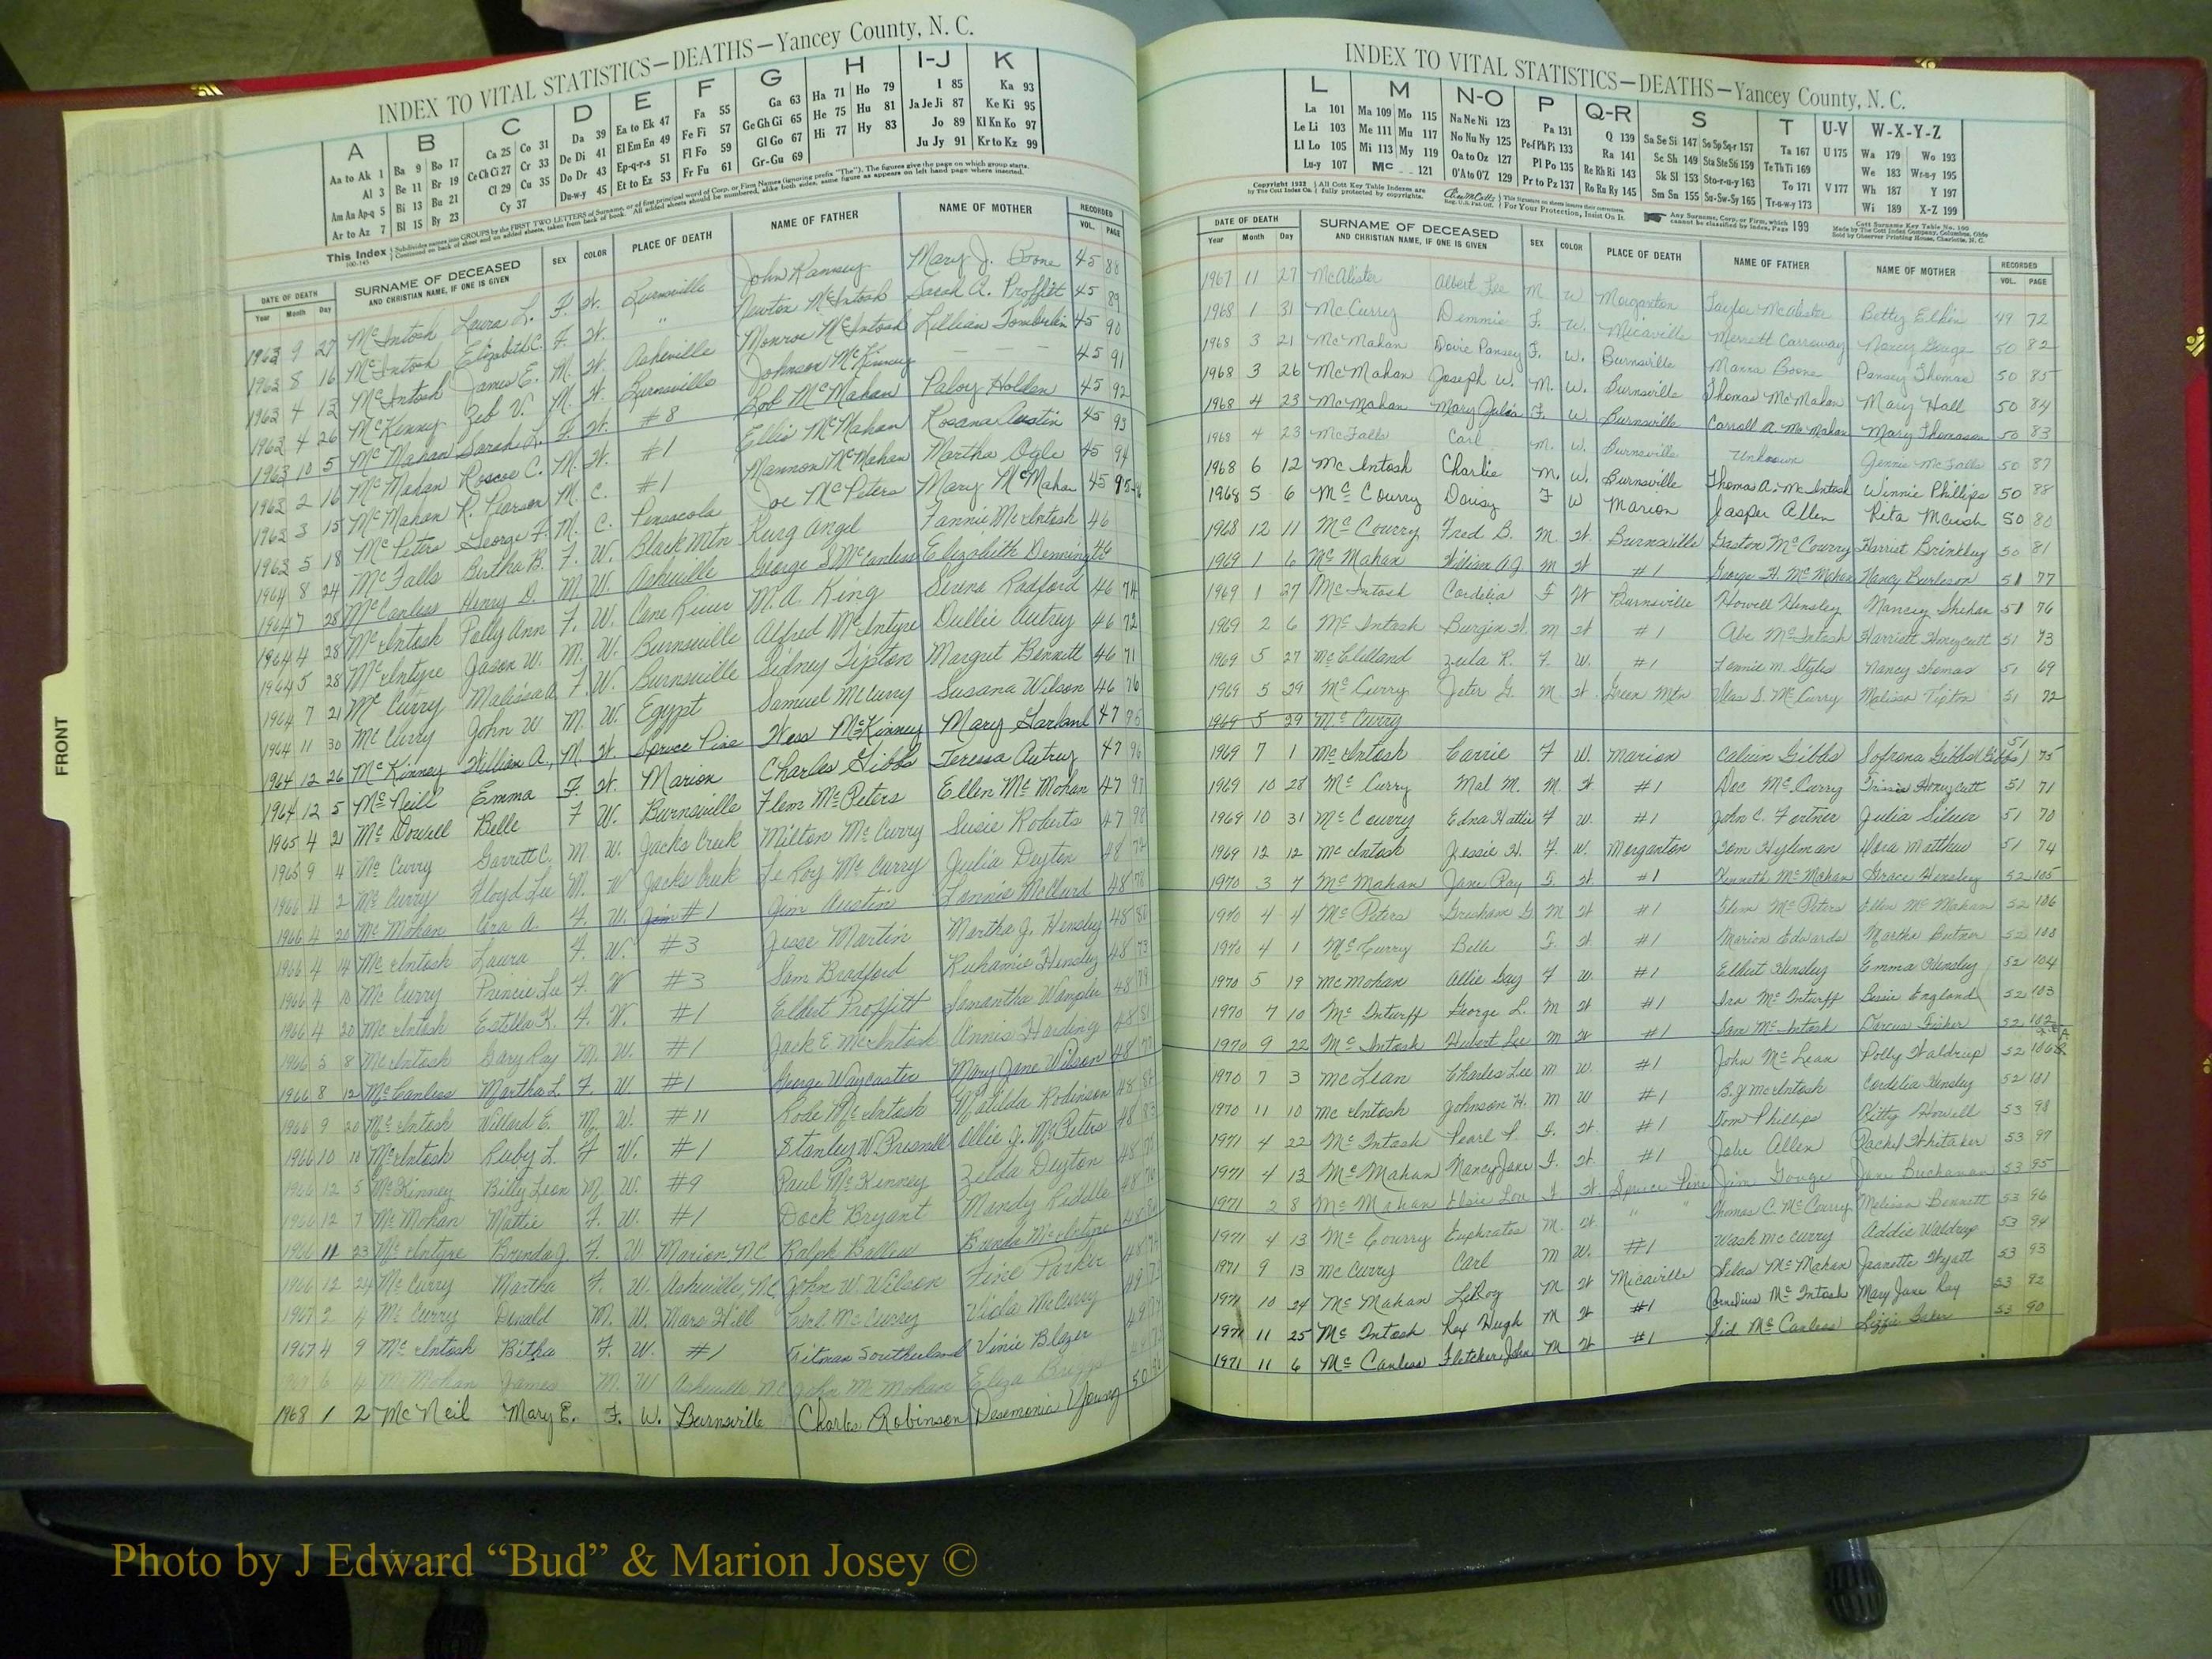 INDEX TO VITAL STATISTICS—DEATHS—Yancey County, N. C.
A B C D E F G H I-J K
Aa to Ak 1 Ba 9 Bo 17 Ca 25 Co 31 Da 39 Ea to Ek 47 Fa 55 Ga 63 Ha 71 Ho 79 I 85 Ka 93
Al 3 Be 11 Br 19 Ce Ch Ci 27 Cr 33 De Di 41 El Em En 49 Fe Fi 57 Ge Gh Gi 65 He 75 Hu 81 Ja Je Ji 87 Ke Ki 95
Am An Ap-q 5 Bi 13 Bu 21 Cl 29 Cu 35 Do Dr 43 Ep-q-r-s 51 Fl Fo 59 Gl Go 67 Hi 77 Hy 83 Jo 89 Kl Kn Ko 97
Ar to Az 7 Bl 15 By 23 Cy 37 Du-w-y 45 Et to Ez 53 Fr Fu 61 Gr-Gu 69 Ju Jy 91 Kr to Kz 99
This Index
DATE OF DEATH SURNAME OF DECEASED SEX COLOR PLACE OF DEATH NAME OF FATHER NAME OF MOTHER RECORDED
Year Month Day AND CHRISTIAN NAME, IF ONE IS GIVEN VOL. PAGE
1963 9 27 McIntosh Laura L. F. W. Burnsville John Ramsey Mary J. Boone 45 88
1963 8 16 McIntosh Elizabeth C. F. W. " Newton McIntosh Sarah A. Proffitt 45 89
1963 4 13 McIntosh James E. M. W. Asheville Monroe McIntosh Lillian Tomberlin 45 90
1963 4 26 McKinney Zeb V. M. W. Burnsville Johnson McKinney — — — 45 91
1963 10 5 McMahan Sarah L. F. W. #8 Bob McMahan Paloy Holden 45 92
1963 2 16 McMahan Roscoe C. M. W. #1 Ellis McMahan Rosana Austin 45 93
1963 3 15 McMahan R. Pearson M. C. #1 Mannon McMahan Martha Ogle 45 94
1963 5 18 McPeters George F. M. C. Pensacola Joe McPeters Mary McMahan 45 95
1964 8 24 McFalls Birtha B. F. W. Black Mtn Kurg Angel Fannie McIntosh 46
1964 7 28 McCanless Henry D. M. W. Asheville George S McCanless Elizabeth Denning 46
1964 4 28 McIntosh Polly Ann F. W. Cane River M. A. King Sirena Radford 46 74
1964 5 28 McIntyre Jason W. M. W. Burnsville Alfred McIntyre Dullie Autrey 46 72
1964 7 21 McCurry Malissa A F. W. Burnsville Sidney Tipton Margret Bennett 46 71
1964 11 30 McCurry John W M. W. Egypt Samuel McCurry Susana Wilson 46 70
1964 12 26 McKinney William A. M. W. Spruce Pine Wess McKinney Mary Garland 47 95
1964 12 5 McNeill Emma F. W. Marion Charles Gibbs Teressa Autrey 47 96
1965 4 21 McDowell Belle F W. Burnsville Flem McPeters Ellen McMahan 47 97
1965 9 4 McCurry Garrett C. M. W. Jacks Creek Milton McCurry Susie Roberts 47 98
1966 4 2 McCurry Floyd Lee M. W Jacks Creek Le Roy McCurry Julia Deyton 48
1966 4 20 McMahan Ora A. F. W. #1 Jim Austin 48
1966 4 14 McIntosh Laura F. W. #3 Jesse Martin Martha J. Hensley 48
1966 4 10 McCurry Princie Lee F. W #3 Sam Bradford Ruhamie Hensley 48 73
1966 4 20 McIntosh Estella K. F. W. #1 Eldert Proffitt Samantha Wampler 48
1966 5 8 McIntosh Gary Ray M. W. #1 Jack E McIntosh Annis Harding 48
1966 8 12 McCanless Martha L. F. W. #1 George Waycaster Mary Jane Wilson 48
1966 9 20 McIntosh Willard E. M. W. #11 Robe McIntosh Matilda Robinson 48
1966 10 10 McIntosh Ruby L. F W. #1 Stanley W. Presnell Allie J. McPeters 48 83
1966 12 5 McKinney Billy Leon M. W. #9 Paul McKinney Zelda Deyton 48
1966 12 7 McMahan Mattie F. W. #1 Dock Bryant Mandy Riddle 48
1966 11 23 McIntyre Brenda J. F. W. Marion, NC Ralph Ballew Brenda McIntyre 48
1966 12 24 McCurry Martha F. W. Asheville, NC John W. Wilson Fine Parker 48
1967 2 4 McCurry Donald M. W. Mars Hill Carl McCurry Viola McCurry 49
1967 4 9 McIntosh Bitha F. W. #1 Pitman Southerland Vinie Blazer 49
1967 6 4 McMahan James M. W Asheville, NC John McMahan Eliza Briggs
1968 1 2 McNeil Mary E. F. W. Burnsville Charles Robinson Desemonia Young 50
FRONT
INDEX TO VITAL STATISTICS—DEATHS—Yancey County, N. C.
L M N-O P Q-R S T U-V W-X-Y-Z
La 101 Ma 109 Mo 115 Na Ne Ni 123 Pa 131 Q 139 Sa Se Si 147 So Sp Sq-r 157 Ta 167 U 175 Wa 179 Wo 193
Le Li 103 Me 111 Mu 117 No Nu Ny 125 Pe-f Ph Pi 133 Ra 141 Sc Sh 149 Sta Ste Sti 159 Te Th Ti 169 We 183 Wr-u-y 195
Ll Lo 105 Mi 113 My 119 Oa to Oz 127 Pl Po 135 Re Rh Ri 143 Sk Sl 153 Sto-r-u-y 163 To 171 V 177 Wh 187 Y 197
Lu-y 107 Mc 121 O'A to O'Z 129 Pr to Pz 137 Ro Ru Ry 145 Sm Sn 155 Su-Sw-Sy 165 Tr-u-w-y 173 Wi 189 X-Z 199
DATE OF DEATH SURNAME OF DECEASED SEX COLOR PLACE OF DEATH NAME OF FATHER NAME OF MOTHER RECORDED
Year Month Day AND CHRISTIAN NAME, IF ONE IS GIVEN VOL. PAGE
1967 11 27 McAlister Albert Lee M W Morganton Taylor McAlister Betty Elkin 49 72
1968 1 31 McCurry Demmie F. W. Micaville Merrett Carroway Nancy Gouge 50 82
1968 3 21 McMahan Dovie Pansey F. W. Burnsville Marra Boone Pansey Thomas 50 85
1968 3 26 McMahan Joseph W. M. W. Burnsville Thomas McMahan Mary Hall 50 84
1968 4 23 McMahan Mary Julia F. W. Burnsville Carroll A McMahan Mary Thomason 50 83
1968 4 23 McFalls Carl M. W. Burnsville Unknown Jennie McFalls 50 87
1968 6 12 McIntosh Charlie M. W. Burnsville Thomas A. McIntosh Winnie Phillips 50 88
1968 5 6 McCourry Daisy F W Marion Jasper Allen Rita McCush 50 80
1968 12 11 McCourry Fred B. M. W. Burnsville Gaston McCourry Harriet Brinkley 50 81
1969 1 6 McMahan William A J M W #1 George H. McMahan Nancy Burleson 51 77
1969 1 27 McIntosh Cordelia F W Burnsville Howell Hensley Nancy Shehan 51 76
1969 2 6 McIntosh Burgin W. M W #1 Abe McIntosh Harriett Honeycutt 51 73
1969 5 27 McClelland Zula R. F. W. #1 Fonnie M. Styles Nancy Thomas 51 69
1969 5 29 McCurry Jeter G. M W. Green Mtn Silas S. McCurry Melissa Tipton 51 72
1969 5 29 McCurry
1969 7 1 McIntosh Carrie F W. Marion Calvin Gibbs Sofrona Gibbs (Gibbs) 51 75
1969 10 28 McCurry Mal M. M. W #1 Doc McCurry Honeycutt 51 71
1969 10 31 McCourry Edna Hattie F W. #1 John C. Fortner Julia Silver 51 70
1969 12 12 McIntosh Jessie H. F. W. Morganton Tom Hyleman Dora Matthew 51 74
1970 3 7 McMahan Jane Ray F. W. #1 Kenneth McMahan Grace Hensley 52 105
1970 4 4 McPeters Grisham G M W #1 Flem McPeters Ellen McMahan 52 106
1970 4 1 McCurry Belle F. W. #1 Marion Edwards Martha Butner 52 100
1970 5 19 McMahan Allie Gay F W. #1 Elbert Hensley Emma Hensley 52 104
1970 7 10 McInturff George L. M W #1 Ira McInturff Bessie England 52 103
1970 9 22 McIntosh Hubert Lee M W #1 Sam McIntosh Darcus Fisher 52 102
1970 7 3 McLean Charles Lee M W. #1 John McLean Polly Waldrup 52 106
1970 11 10 McIntosh Johnson H. M W #1 B.J. McIntosh Cordelia Hensley 52 101
1971 4 22 McIntosh Pearl P. F. W. #1 Tom Phillips Kitty Howell 53 98
1971 4 13 McMahan Nancy Jane F. W. #1 Jobe Allen Rachel Whitaker 53 97
1971 2 8 McMahan Elsie Lou F W. Spruce Pine Jim Gouge Jane Buchanan 53 95
1971 4 13 McCourry Euphrates M. W. " " Thomas C. McCourry Melissa Bennett 53 96
1971 9 13 McCurry Carl M W. #1 Wash McCurry Addie Waldrup 53 94
1971 10 24 McMahan LeRoy M W Micaville Silas McMahan Jeanette Hyatt 53 93
1971 11 25 McIntosh Rex Hugh M W #1 Cornelius McIntosh Mary Jane Ray 53 92
1971 11 6 McCanless Fletcher John M W #1 Sid McCanless Lizzie Baker 53 90
Photo by J Edward “Bud” & Marion Josey ©